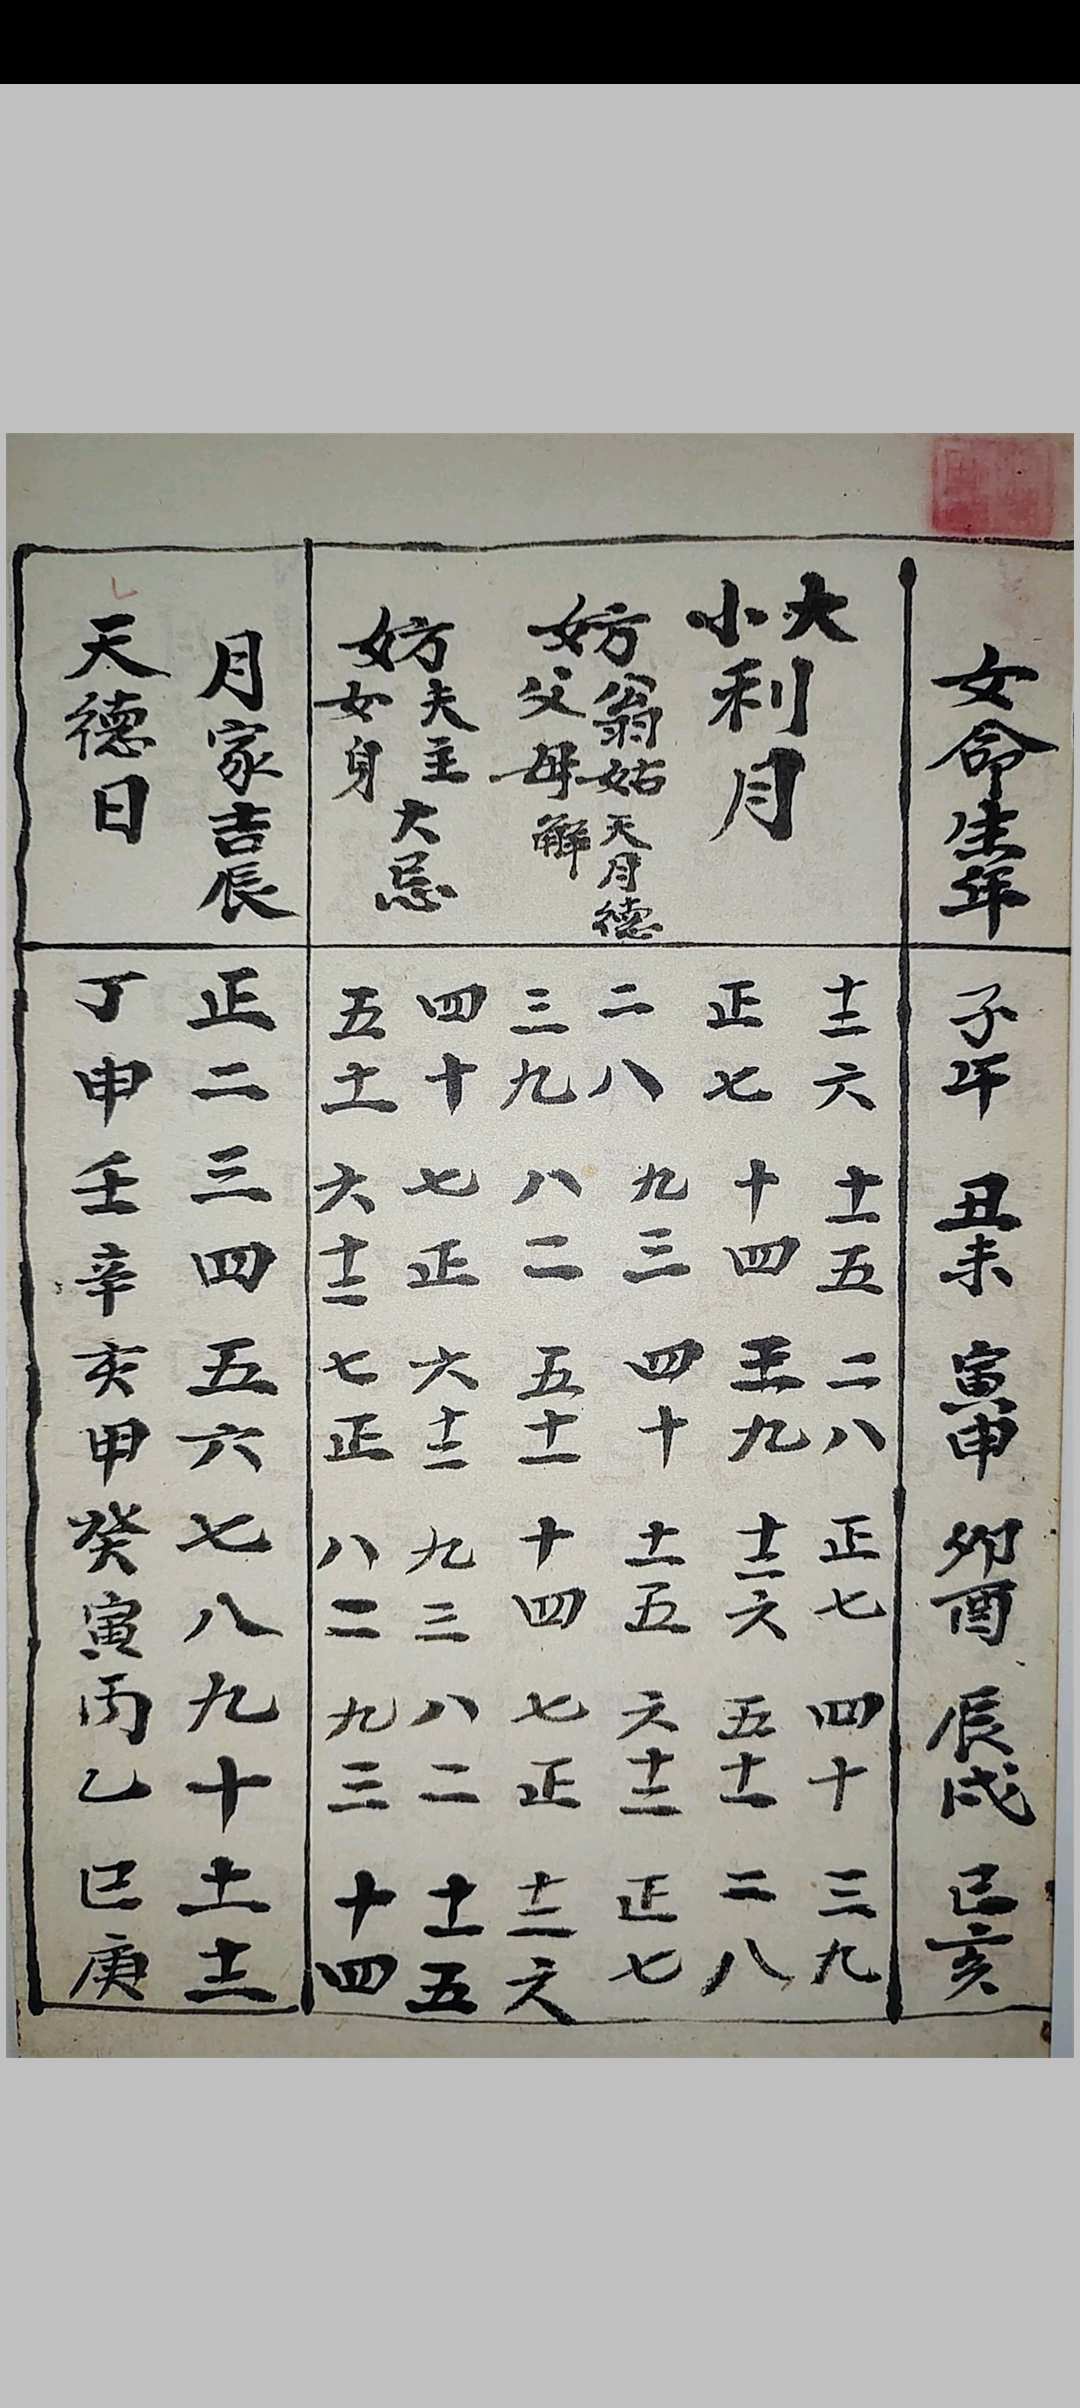 女命生年 子午 丑未 寅申 卯酉 辰戌 巳亥
大小利月
十二六 十一五 二八 正七 四十 三九
正七 十四 三九 十二六 五十一 二八
妨翁姑天月德
父母解
二八 九三 四十 十一五 六十二 正七
三九 八二 五十一 十四 七正 十二六
妨夫主
女身
大忌
四十 七正 六十二 九三 八二 十一五
五十一 六十二 七正 八二 九三 十四
月家吉辰 正二三四五六七八九十十一十二
天德日 丁申壬辛亥甲癸寅丙乙巳庚